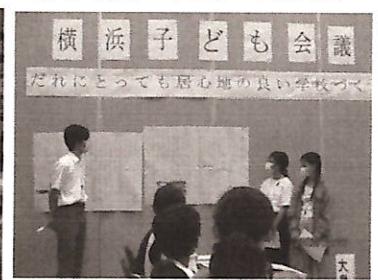 横浜子ども会議
だれにとっても居心地の良い学校づく
大